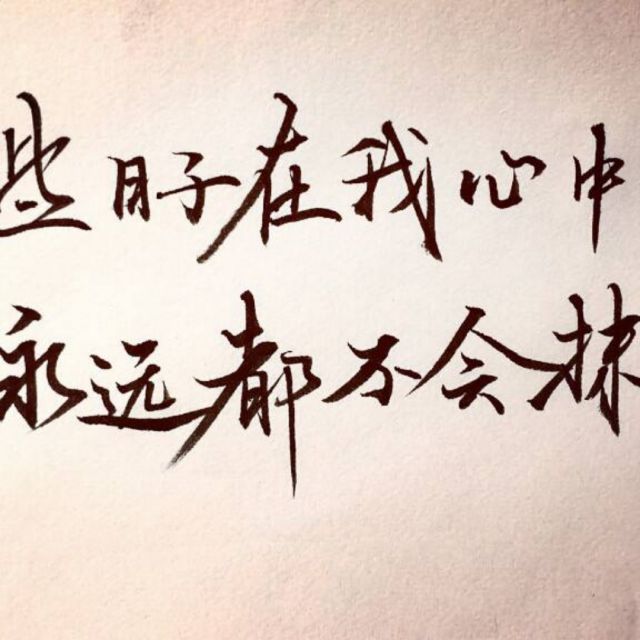 些日子在我心中
永远都不会抹